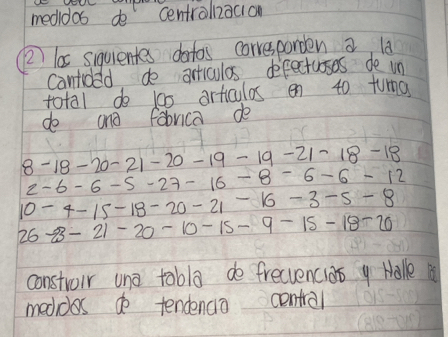 medidos de centralización
② los siguientes datos corresponden a la
cantidad de articulos defectuosos de un
total de 100 articulos en 40 turnos
de una fábrica de
8-18-20-21-20-19-19-21-18-18
2-6-6-5-27-16-8-6-6-12
10-4-15-18-20-21-16-3-5-8
26-23-21-20-10-15-9-15-18-20
construir una tabla de frecuencias y Halle
medidas de tendencia central